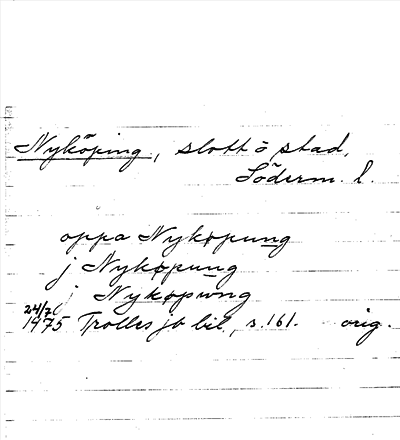 Nyköping, slott o stad,
Söderm. l.
oppa Nykøpung
j Nykøpung
j Nykøpwng
24/7
1475 Trolles jb bil, s. 161. orig.